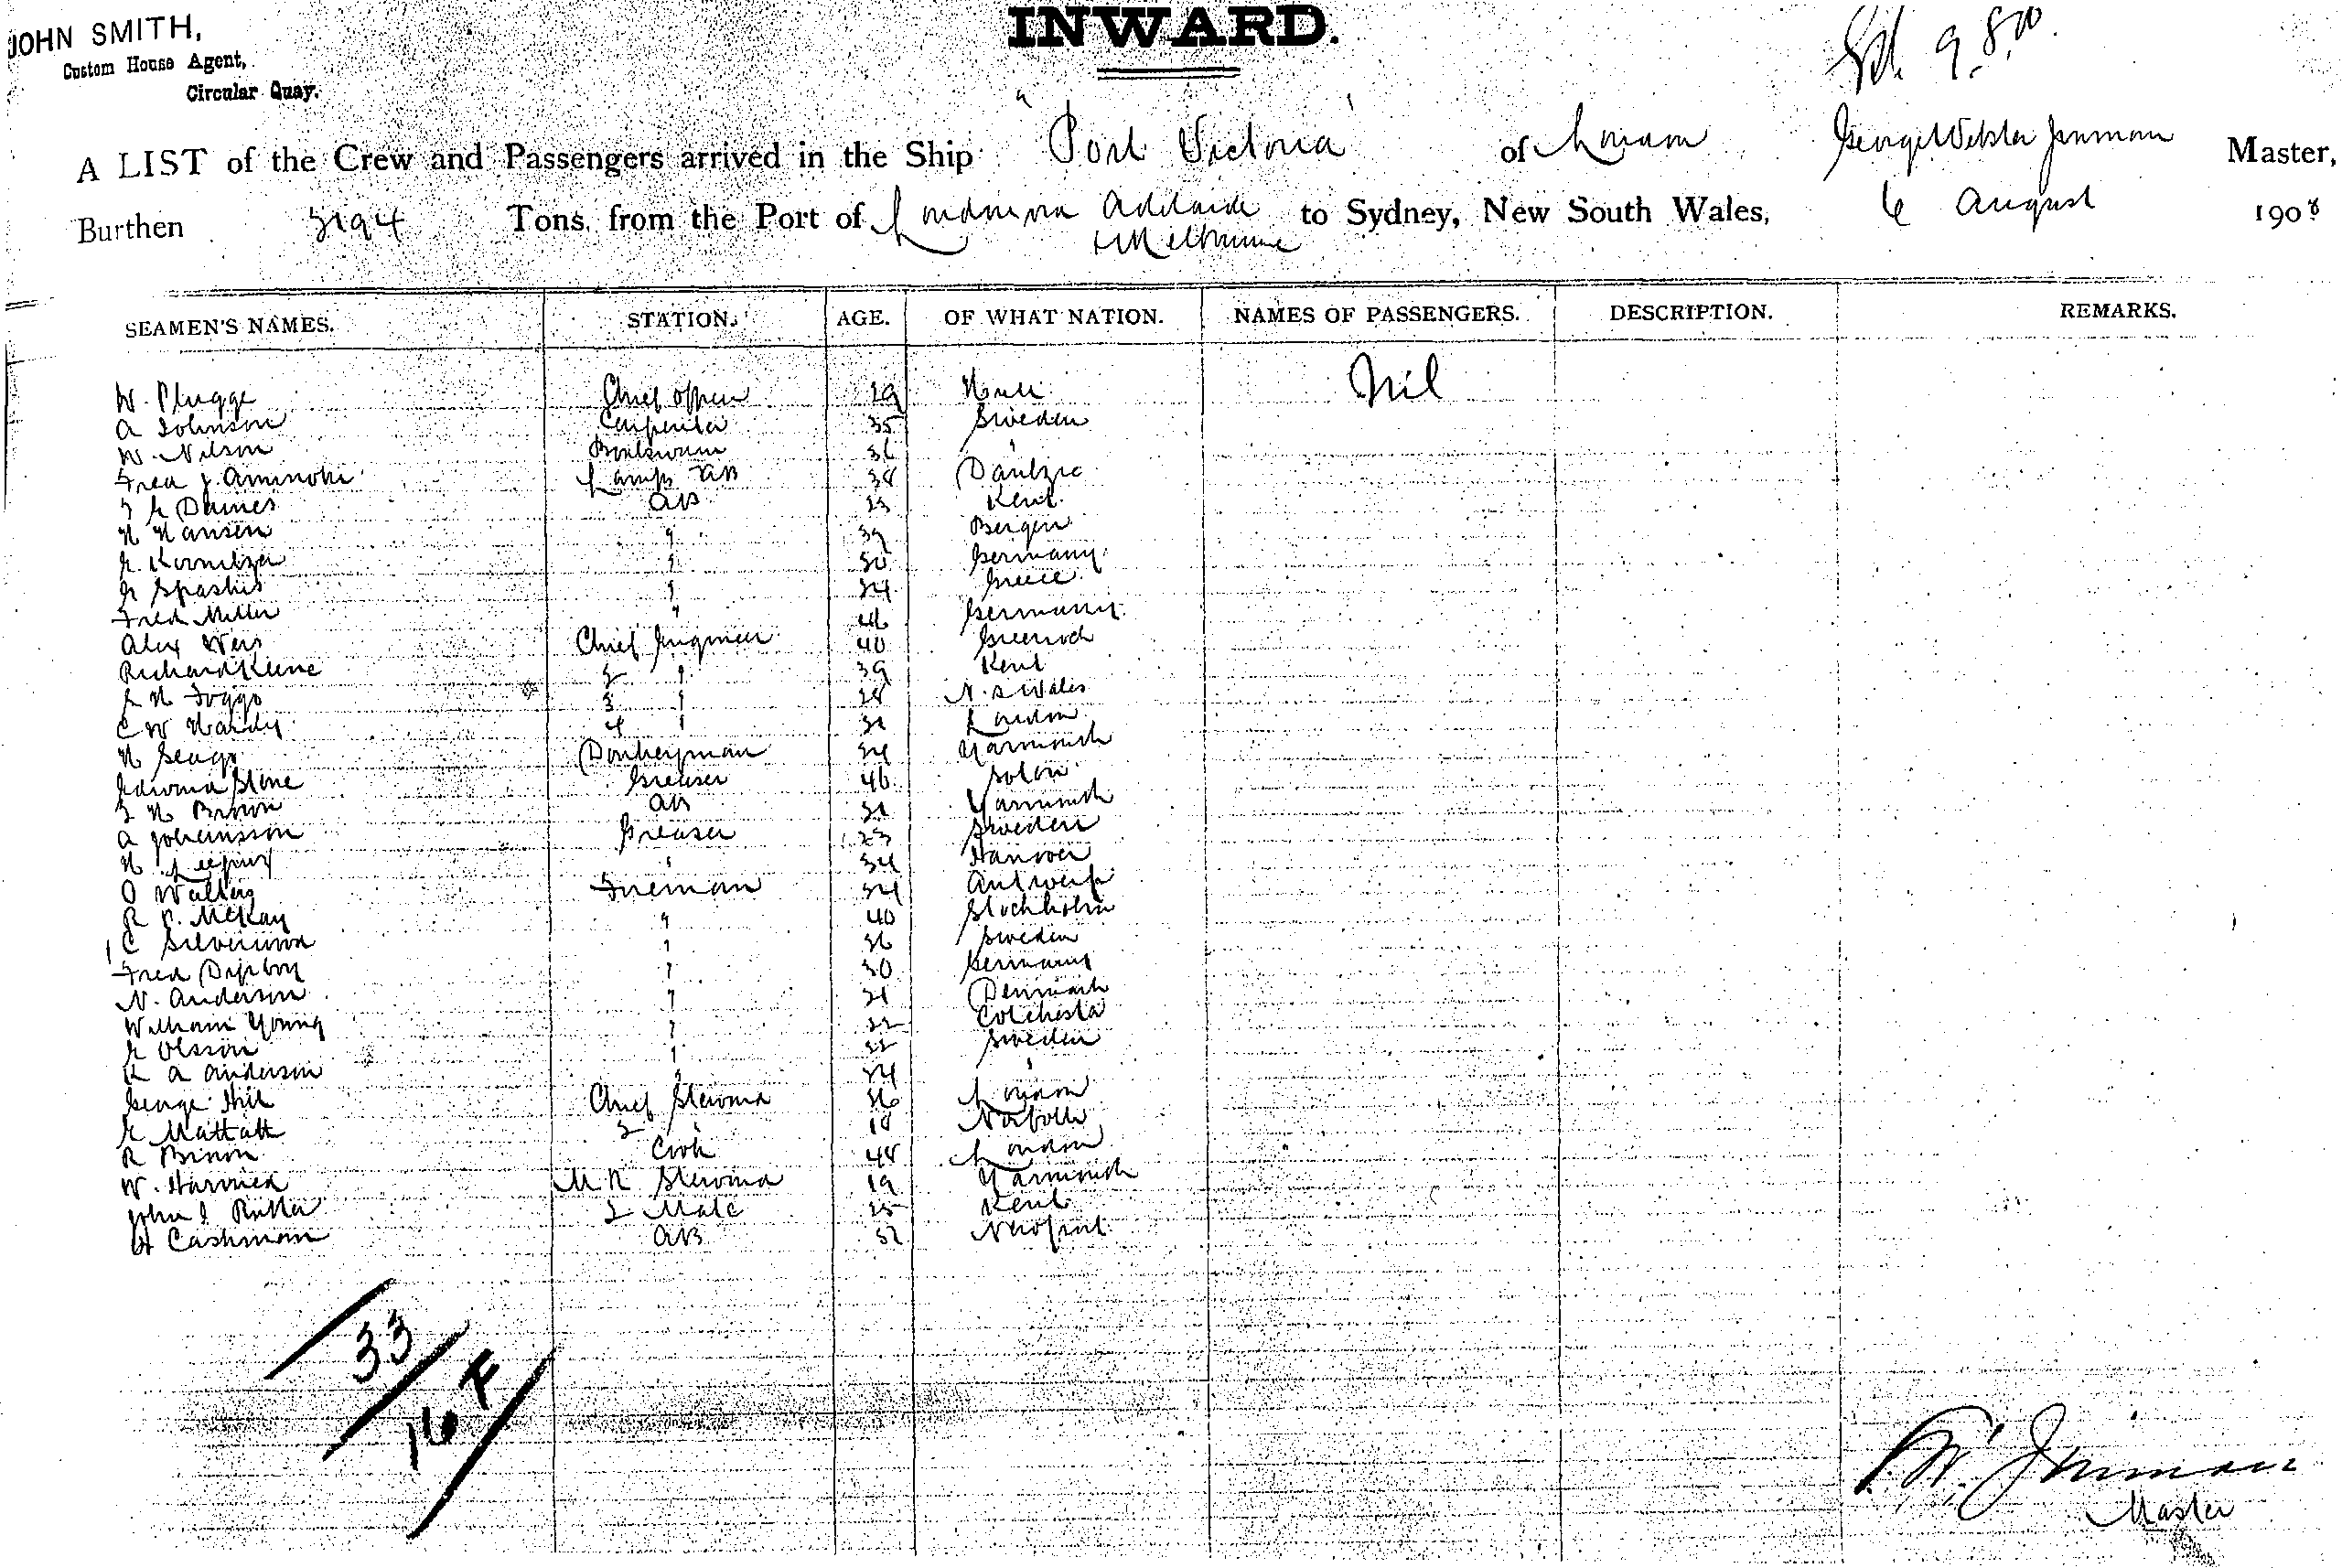 JOHN SMITH,
Custom House Agent,
Circular Quay.
INWARD.
9.8.
A LIST of the Crew and Passengers arrived in the Ship "Port Victoria" of London George Webster Jenman Master,
Burthen 3194 Tons, from the Port of London via Adelaide & Melbourne to Sydney, New South Wales, 6 August 1908
SEAMEN'S NAMES. STATION. AGE. OF WHAT NATION. NAMES OF PASSENGERS. DESCRIPTION. REMARKS.
W. Plugge Chief Officer 29 Hull Nil
A Johnson Carpenter 35 Sweden
W. Nilson Boatswain 36 "
Fred J. Lamps AB 38 Dantzic
Daines AB 23 Kent
H Hansen " 39 Bergen
G. " 30 Germany
G " 24 Greece
Fred Miller " 46 Germany
Alex Weir Chief Engineer 40 Greenock
Richard Keene 2 " 39 Kent
Foggo 3 " 28 N. S Wales
C W Hardy 4 " London
H Seago Donkeyman Yarmouth
Edward Stone Greaser 46
H Brown AB Yarmouth
A Johansson Greaser 23 Sweden
H " 34 Hanover
O Fireman Antwerp
R McKay " 40 Stockholm
C " 36 Sweden
Fred " 30 Germany
N. Anderson " Denmark
William Young " 22 Colchester
G Olsson " 22 Sweden
K A Anderson " 24 "
George Hill Chief Steward 36 London
G Mattatt 2 " 18 Norfolk
R Cook 48 London
W. M R Steward 19 Yarmouth
John 2 Mate 25 Kent
H Cashman AB Newport
33
16 F
G. W. Jenman
Master